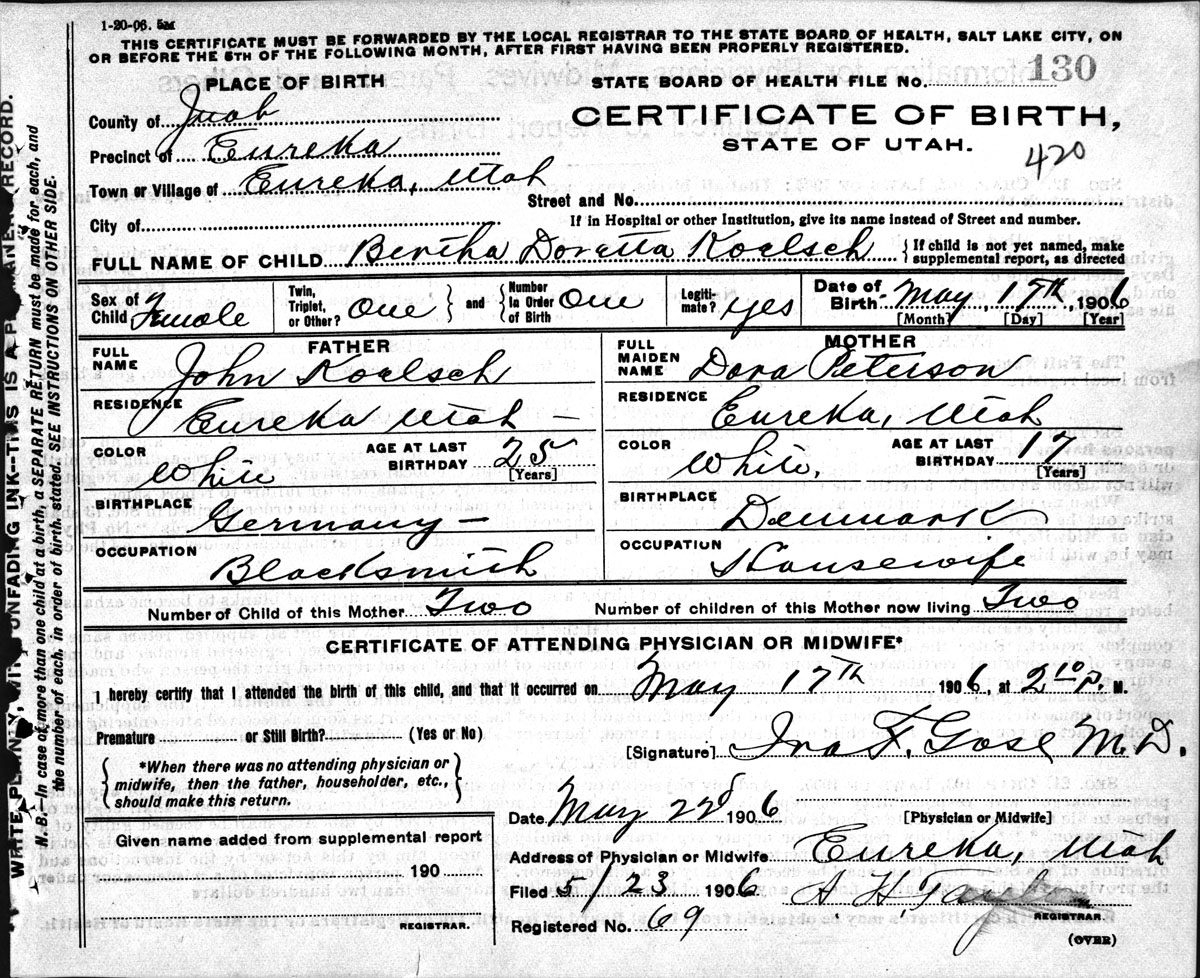 1-20-06. 5M
THIS CERTIFICATE MUST BE FORWARDED BY THE LOCAL REGISTRAR TO THE STATE BOARD OF HEALTH, SALT LAKE CITY, ON
OR BEFORE THE 5TH OF THE FOLLOWING MONTH, AFTER FIRST HAVING BEEN PROPERLY REGISTERED.
PLACE OF BIRTH
STATE BOARD OF HEALTH FILE NO. 130
County of Juab
CERTIFICATE OF BIRTH,
STATE OF UTAH.
420
Precinct of Eureka
Town or Village of Eureka, Utah
Street and No.
City of
If in Hospital or other Institution, give its name instead of Street and number.
FULL NAME OF CHILD Bertha Doretta Koelsch { If child is not yet named, make
supplemental report, as directed
Sex of Child Female
Twin, Triplet, or Other? One } and { Number In Order of Birth One
Legiti-mate? yes
Date of Birth May, 17th, 1906
[Month] [Day] [Year]
FATHER
FULL NAME John Koelsch
RESIDENCE Eureka Utah –
COLOR White
AGE AT LAST BIRTHDAY 25
[Years]
BIRTHPLACE Germany –
OCCUPATION Blacksmith
MOTHER
FULL MAIDEN NAME Dora Peterson
RESIDENCE Eureka, Utah
COLOR White,
AGE AT LAST BIRTHDAY 17
[Years]
BIRTHPLACE Denmark
OCCUPATION Housewife
Number of Child of this Mother Two Number of children of this Mother now living Two
CERTIFICATE OF ATTENDING PHYSICIAN OR MIDWIFE*
I hereby certify that I attended the birth of this child, and that it occurred on May 17th 1906, at 2 10 P. M.
Premature or Still Birth? (Yes or No)
[Signature] Ira F. Gose M.D.
{ *When there was no attending physician or
midwife, then the father, householder, etc.,
should make this return. }
Date May 22d 1906
[Physician or Midwife]
Given name added from supplemental report
190
REGISTRAR.
Address of Physician or Midwife Eureka, Utah
Filed 5/23 1906
H H
REGISTRAR.
Registered No. 69
(OVER)
WRITE PLAINLY, WITH UNFADING INK--THIS IS A PERMANENT RECORD.
N. B.--In case of more than one child at a birth, a SEPARATE RETURN must be made for each, and
the number of each, in order of birth, stated. SEE INSTRUCTIONS ON OTHER SIDE.